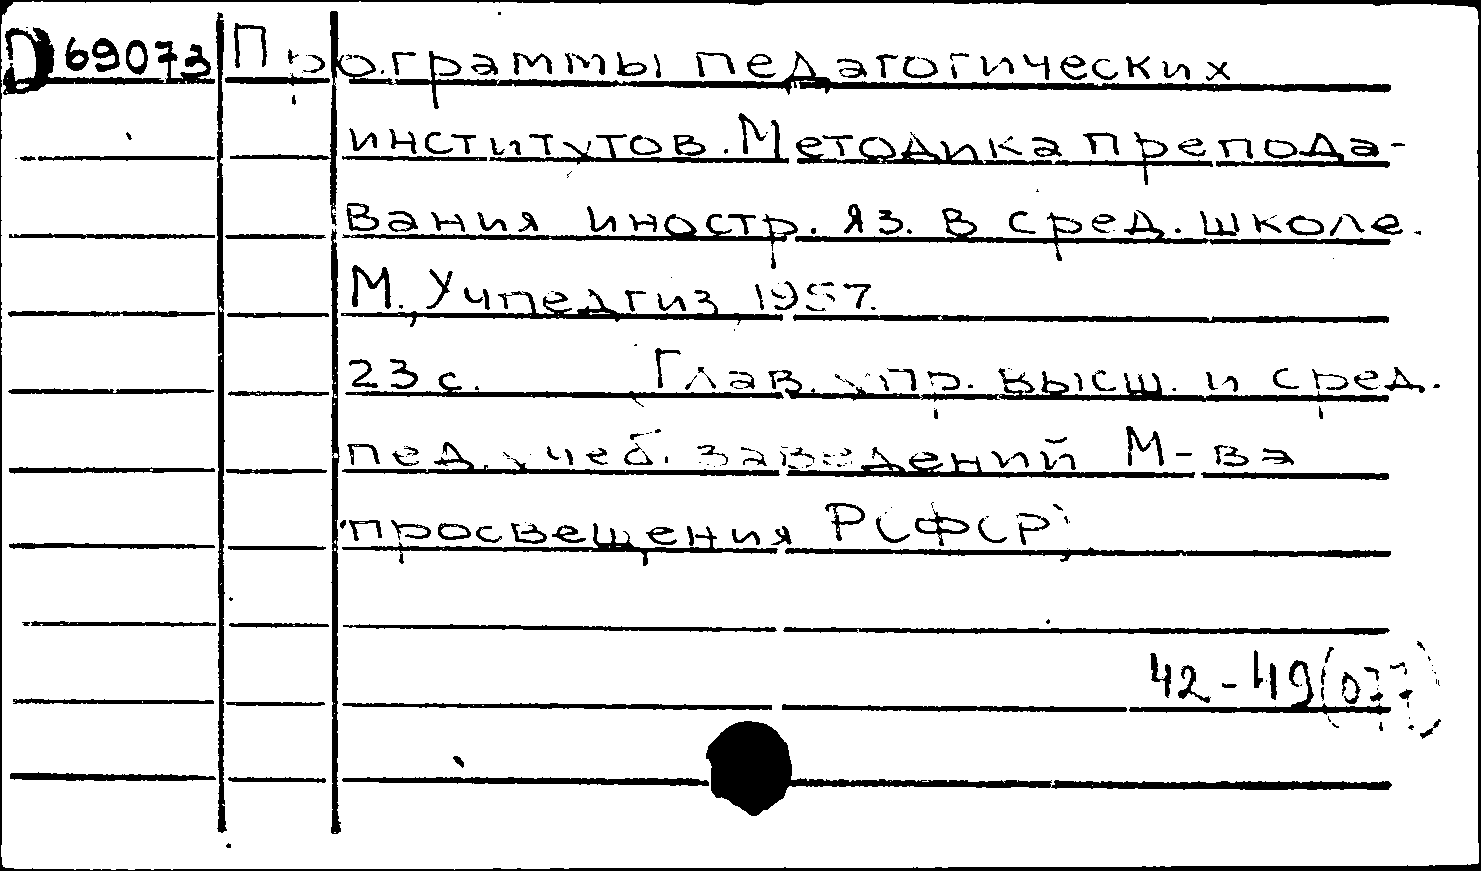 D 69073 Программы педагогических
институтов. Методика препода-
вания иностр. яз. в сред. школе.
М., Учпедгиз, 1957.
23 с. Глав. упр. высш. и сред.
пед. учеб. заведений М-ва
просвещения РСФСР,
42-49(077)